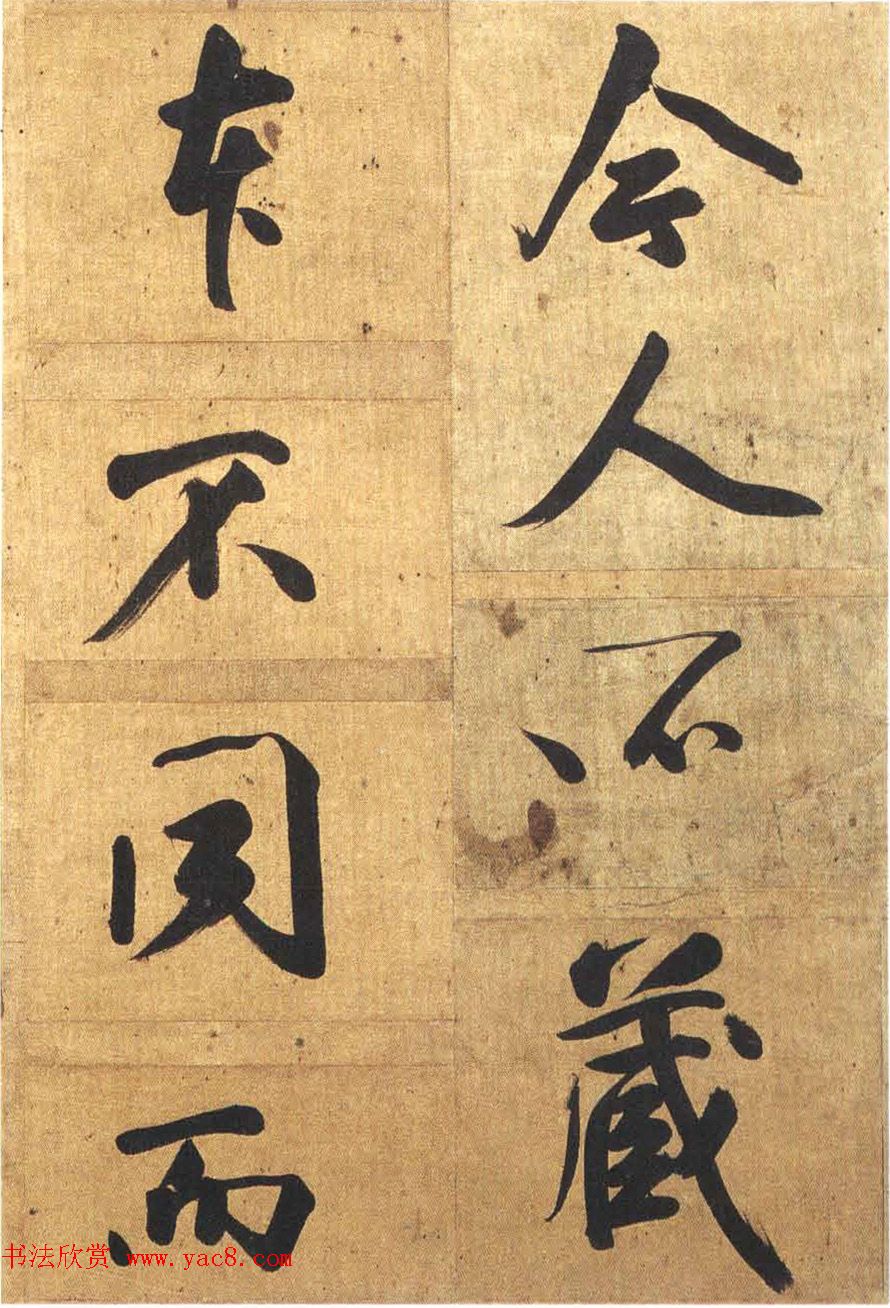 今人所藏
本不同而
书法欣赏 www.yac8.com